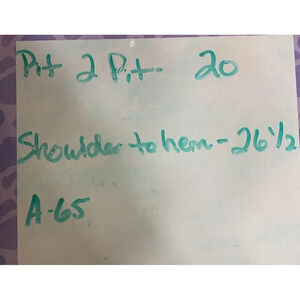 Pit 2 Pit- 20
Shoulder to hem - 26 1/2
A-65